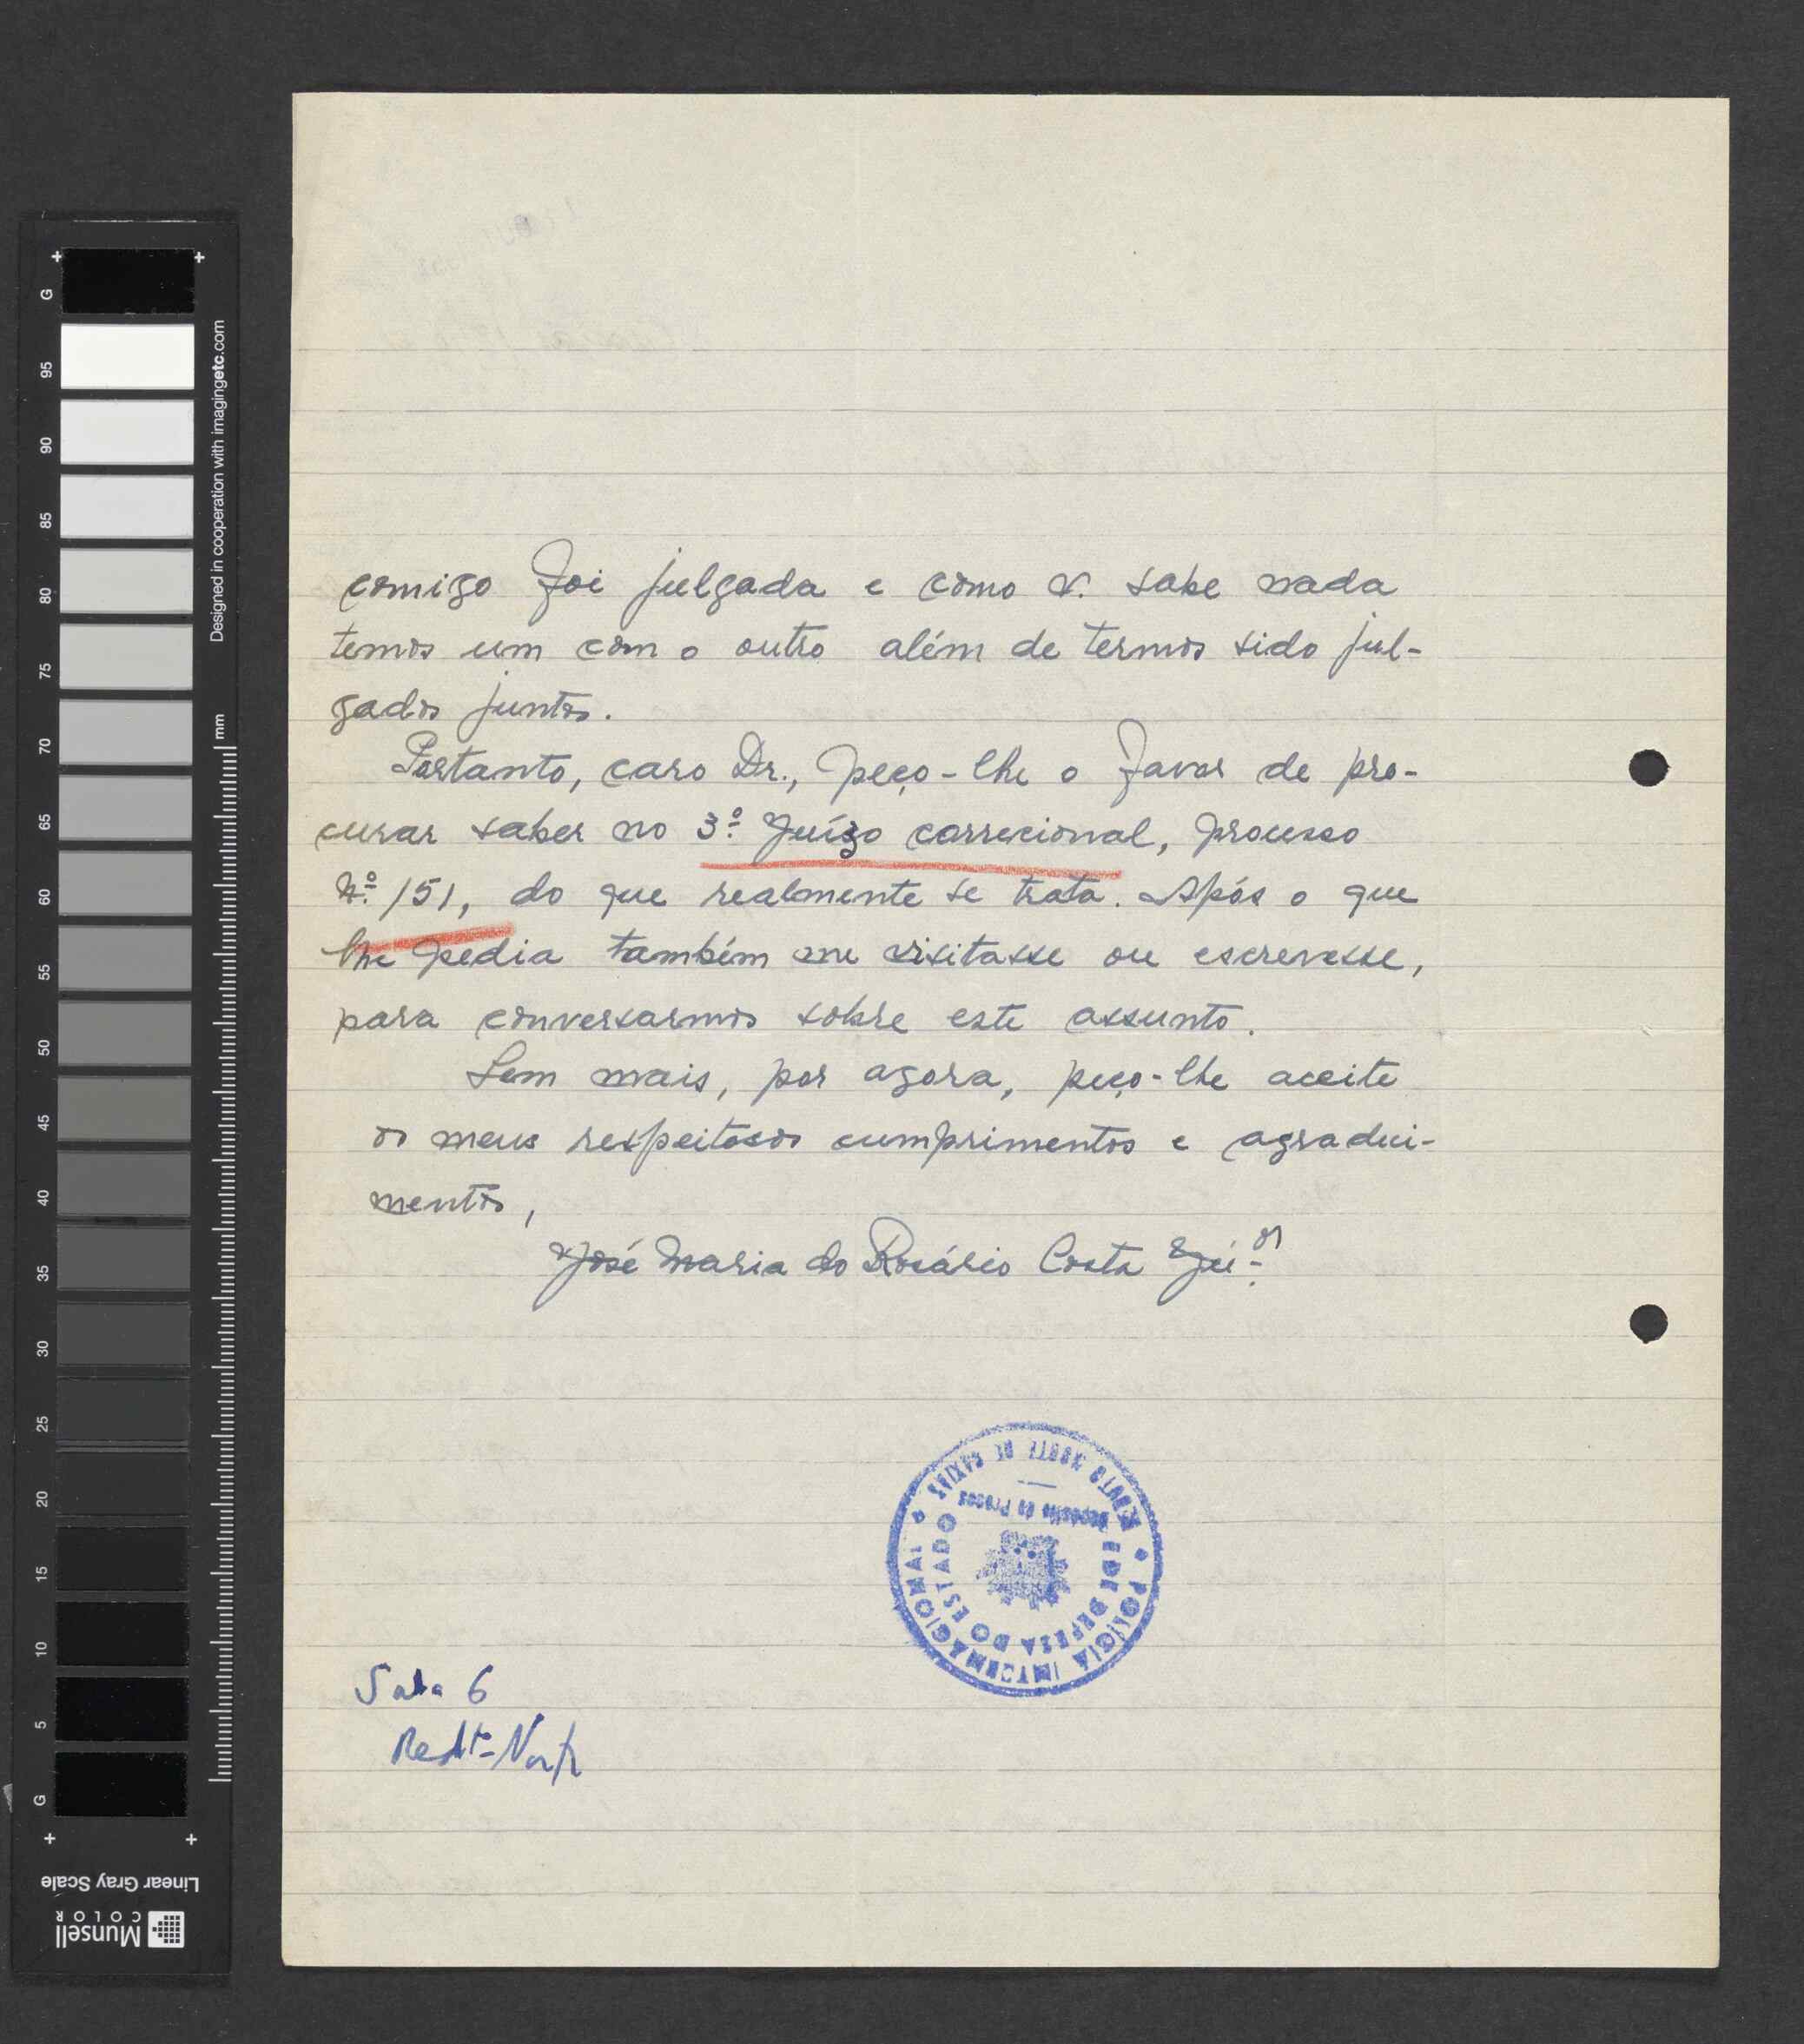 comigo foi julgada e como v. sabe nada
temos um com o outro além de termos sido jul-
gados juntos.
Portanto, caro Dr., peço-lhe o favor de pro-
curar saber no 3º Juízo correcional, processo
Nº 151, do que realmente se trata. Após o que
lhe pedia também me visitasse ou escrevesse,
para conversarmos sobre este assunto.
Sem mais, por agora, peço-lhe aceite
os meus respeitosos cumprimentos e agradeci-
mentos,
José Maria do Rosário Costa Jú-or
POLICIA INTERNACIONAL
E DE DEFESA DO ESTADO
REDUTO NORTE DE CAXIAS
Depósito de Presos
Sala 6
Redtº Norte
G
95
90
85
80
75
70
65
60
55
50
45
40
35
30
25
20
15
10
5
G
mm
Designed in cooperation with imagingetc.com
Linear Gray Scale
Munsell
COLOR